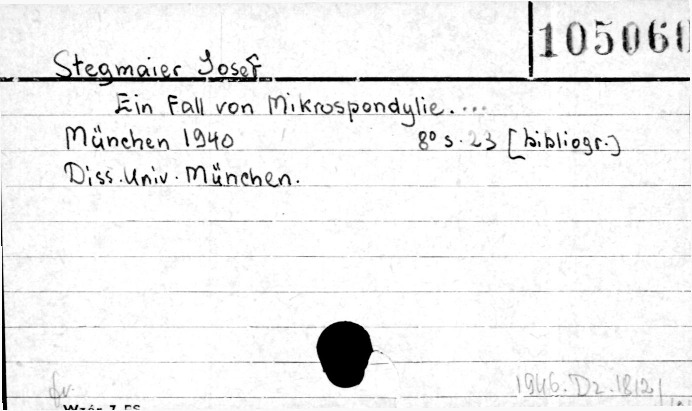 105060
Stegmaier Josef
Ein Fall von Mikrospondylie....
München 1940 8° s. 23 [bibliogr.]
Diss. Univ. München.
1946. Dz. 1812
Wzór 7 FS